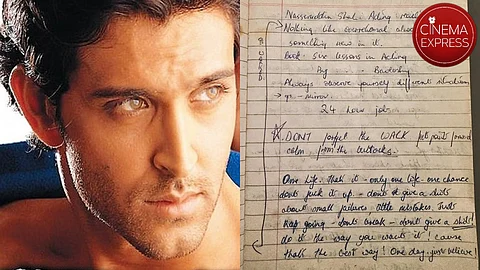 CINEMA
EXPRESS
Naseeruddin Shah. Acting
Nothing like
something new in it.
Book Six lessons in Acting
By
Always observe yourself different situation
mirror.
24 hour job.
DONT forget the WALK
calm from the buttocks.
One life. that's it - only one life - one chance
don't fuck it up - don't give a shit
about small failures little mistakes. Just
keep going - don't break - don't give a shit!
do it the way you want it! cause
that's the best way! One day just believe